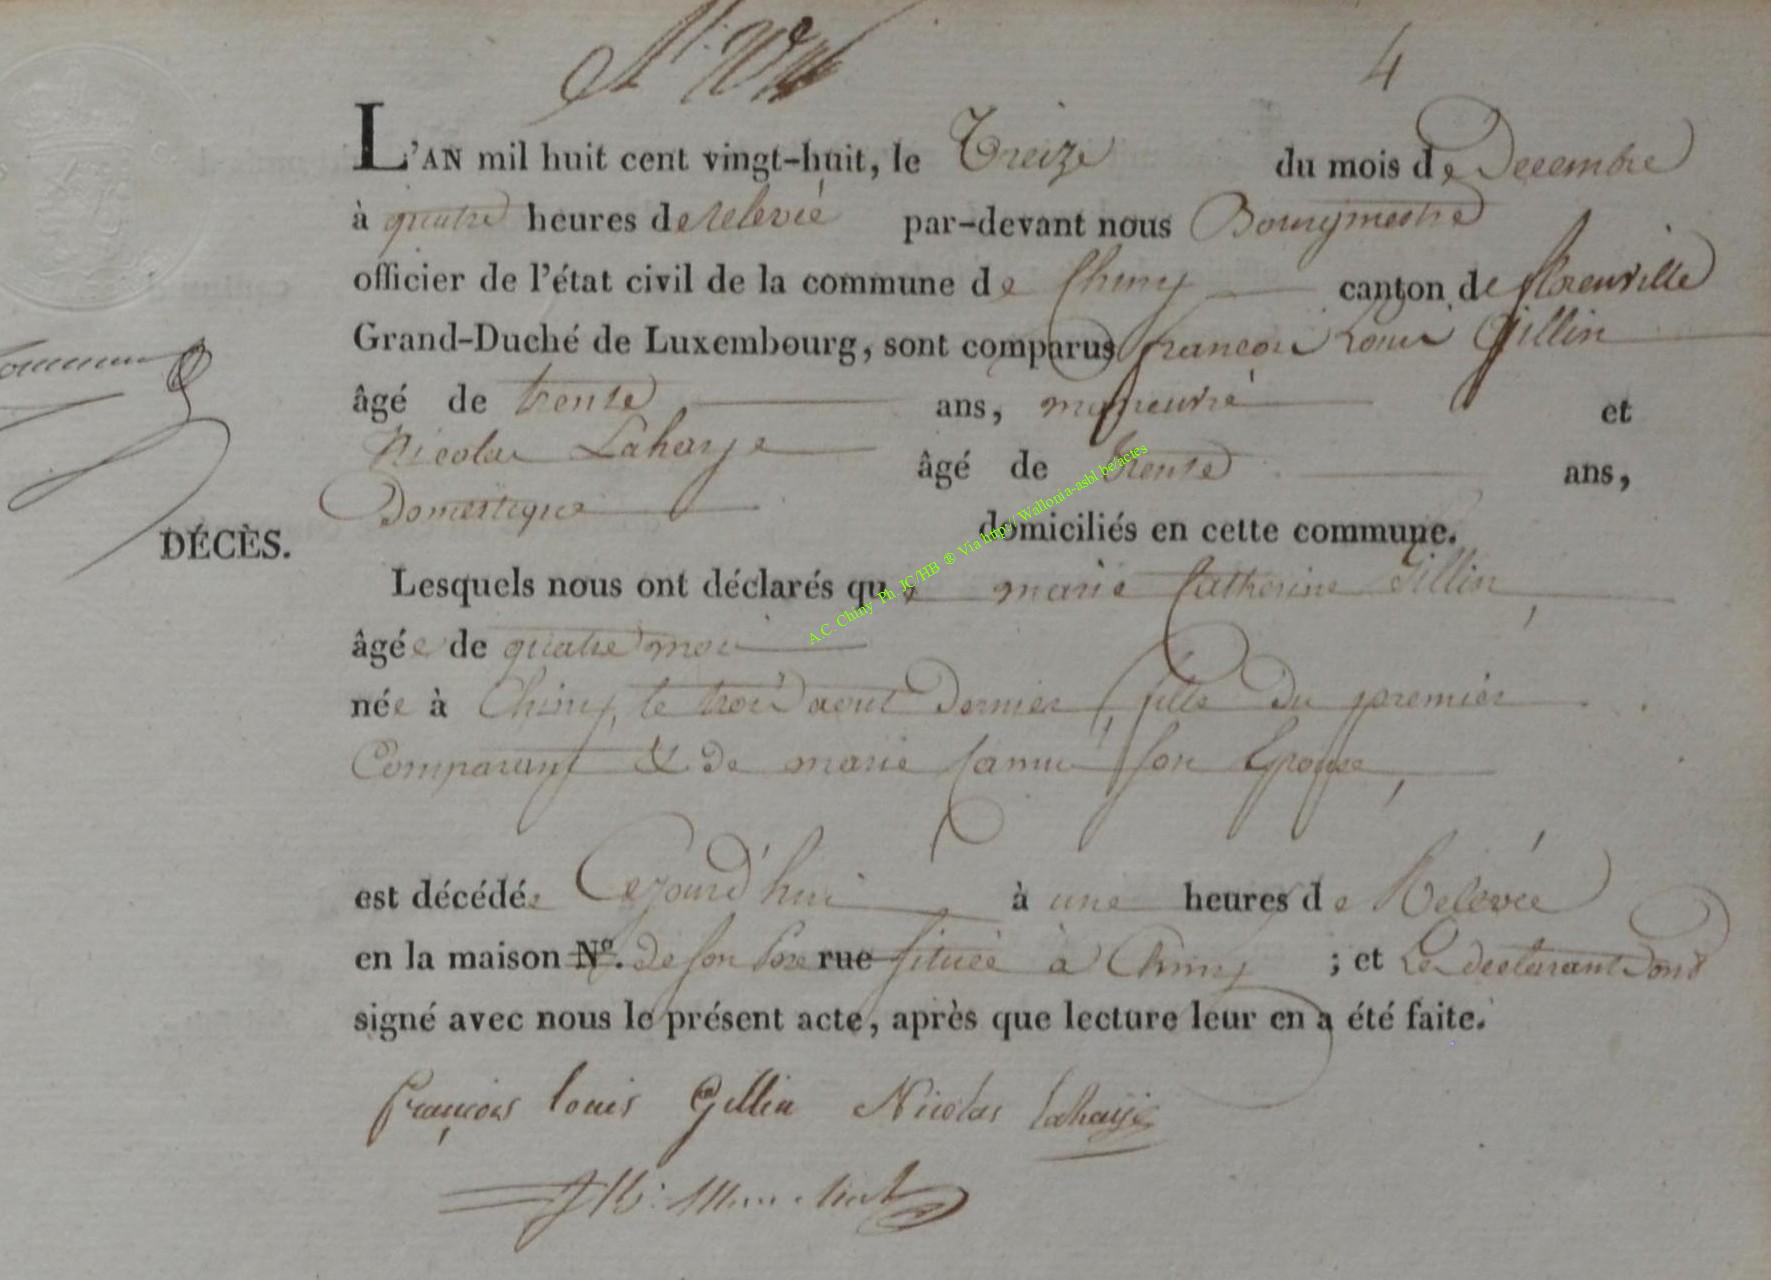 4
L'AN mil huit cent vingt-huit, le Treize du mois de Decembre
à quatre heures de relevée par-devant nous Bourgmestre
officier de l'état civil de la commune de Chiny canton de florenville
Grand-Duché de Luxembourg, sont comparus francois Louis Gillin
âgé de trente ans, maneuvre et
Nicolas Lahaye âgé de trente ans,
Domestique domiciliés en cette commune.
DÉCÈS.
Lesquels nous ont déclarés que marie Catherine Gillin,
âgée de quatre mois
née à Chiny, le trois aout dernier, fille du premier
Comparant & de marie Camu son Epouse,
est décédée Cejourd'hui à une heures de Relevée
en la maison Nº. de son Pere rue située à Chiny ; et Les declarant ont
signé avec nous le présent acte, après que lecture leur en a été faite.
françois louis Gillin Nicolas lahaye
A.C. Chiny Ph JC/HB ® Via http://Wallonia-asbl.be/actes